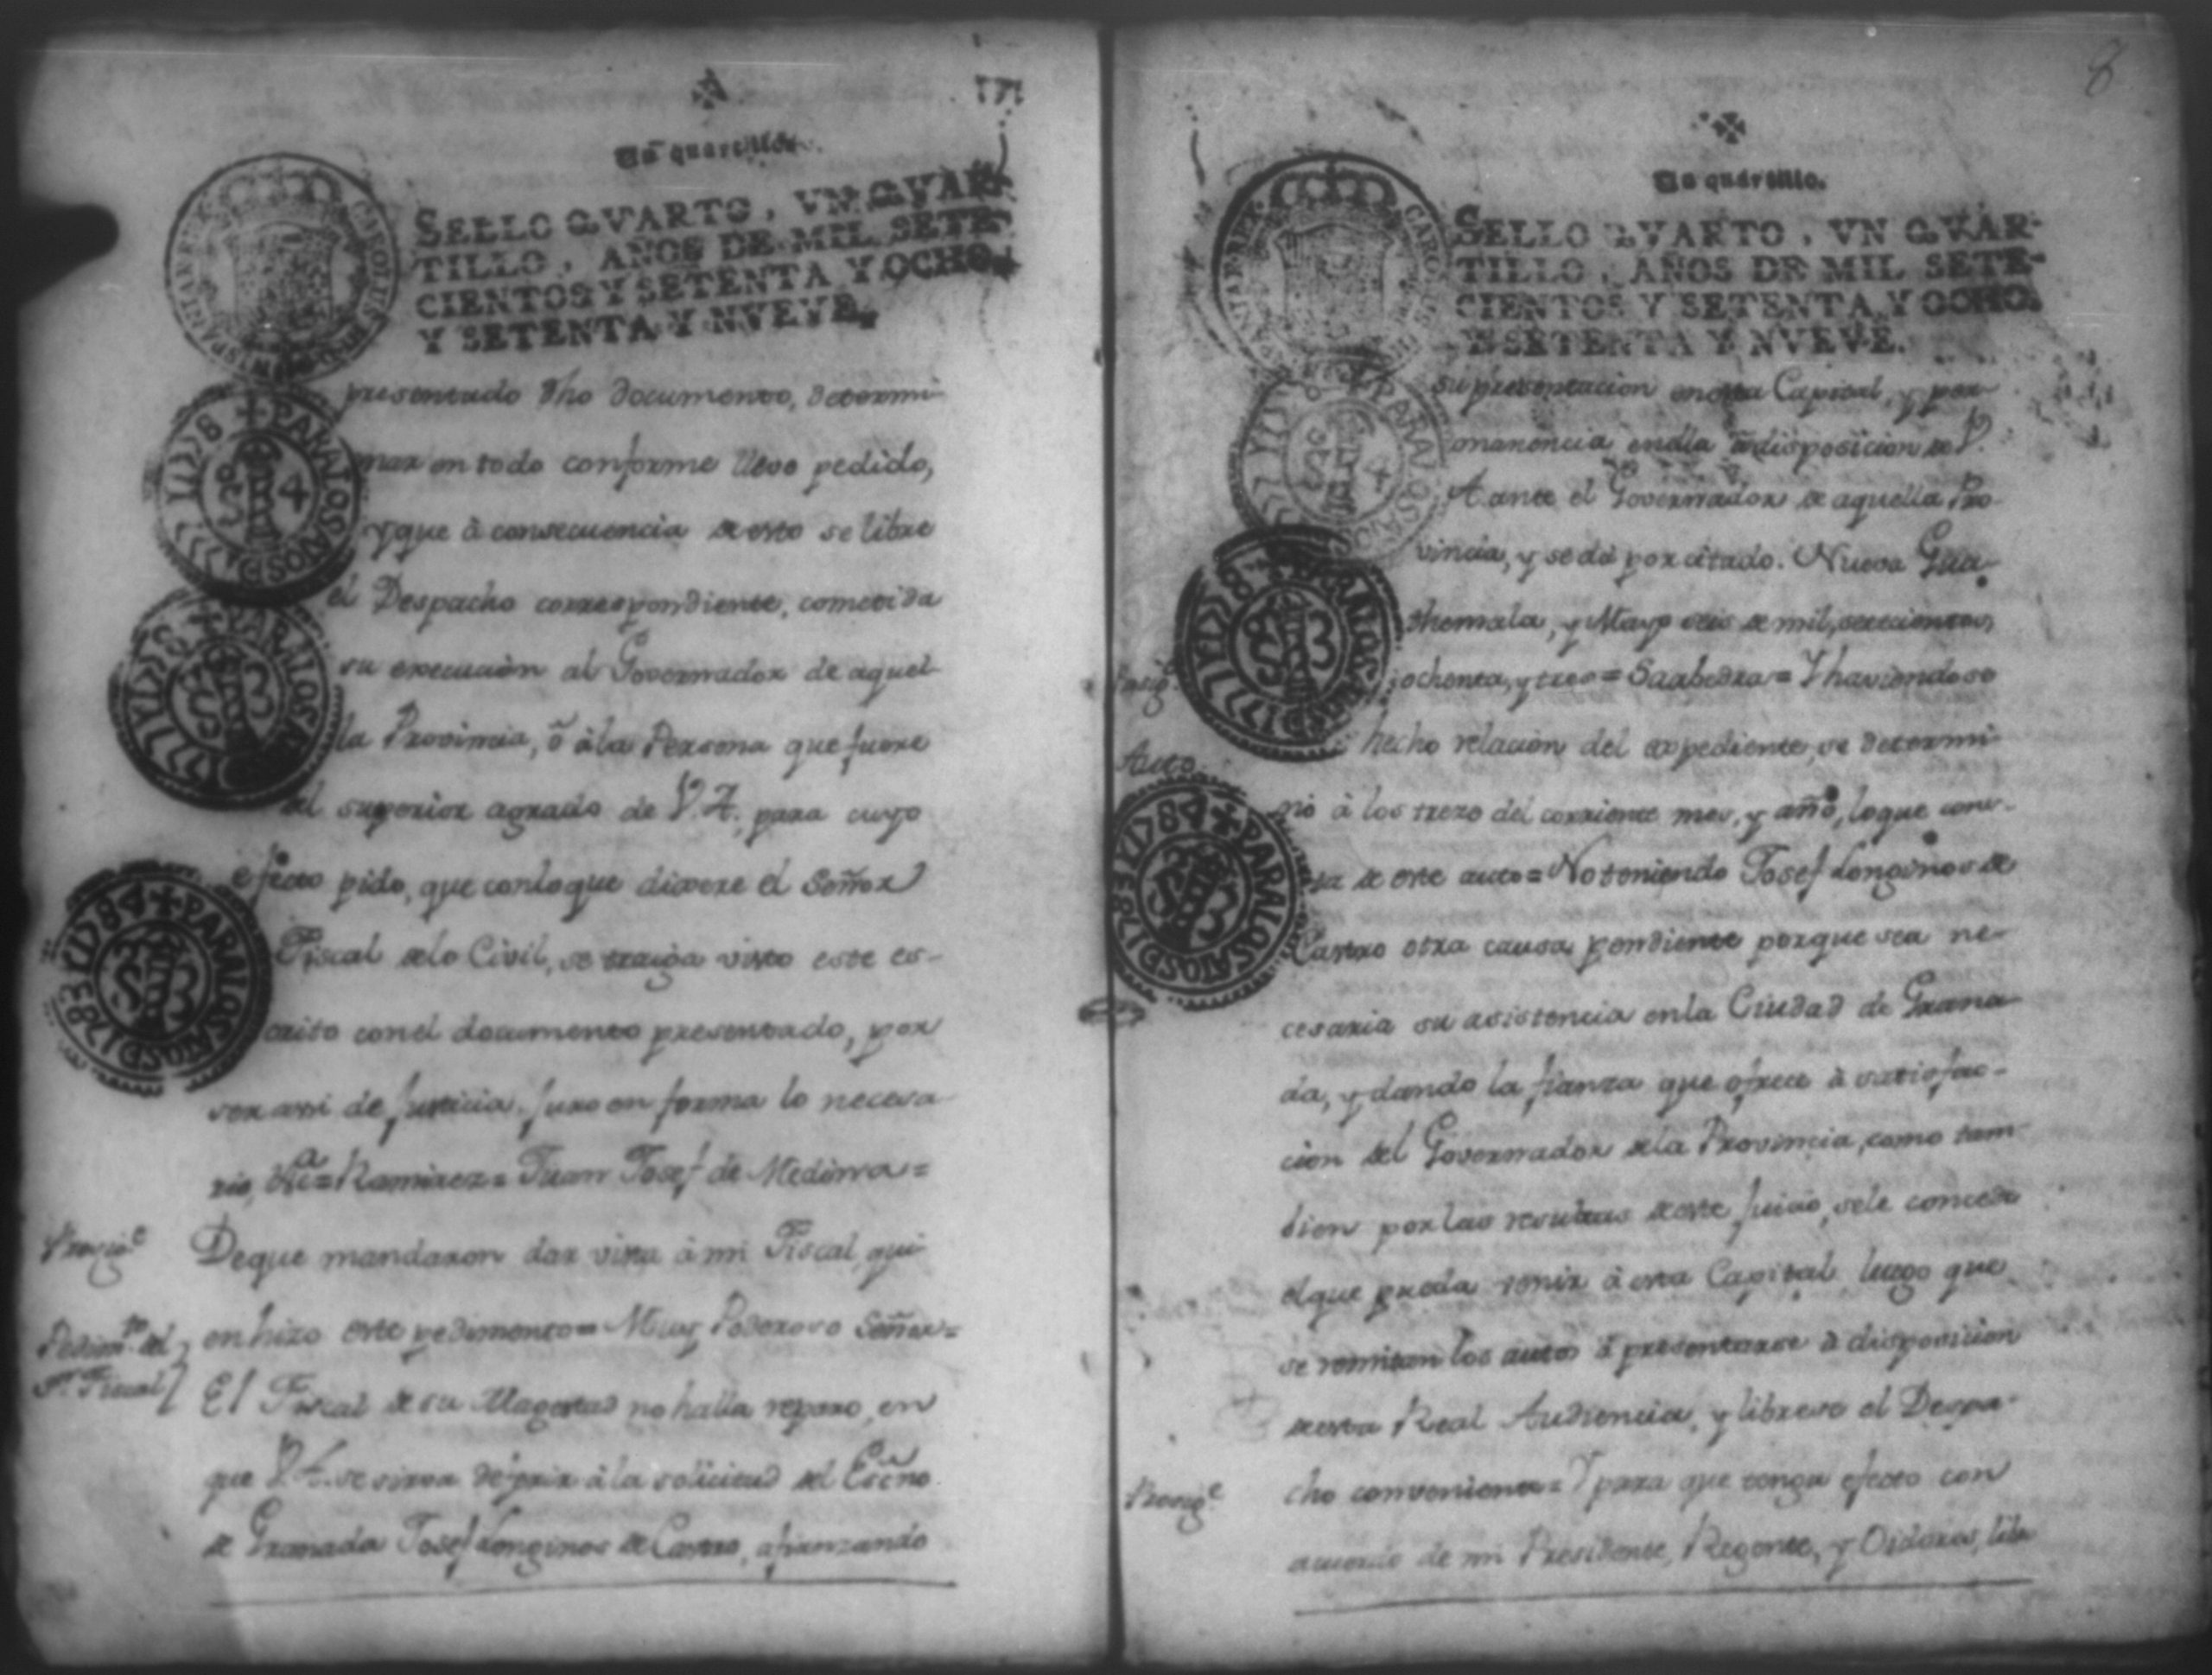 Un quartillo.
SELLO QVARTO, VN QVAR-
TILLO, AÑOS DE MIL SETE-
CIENTOS Y SETENTA Y OCHO,
Y SETENTA Y NVEVE.
presentado dho documento, determi-
nar en todo conforme llevo pedido,
y que à consecuencia de esto se libre
el Despacho correspondiente, cometida
su execucion al Governador de aquel-
la Provincia, ò à la Persona que fuere
del superior agrado de V.A. para cuyo
efecto pido, que con lo que dixere el Señor
Fiscal de lo Civil, se traiga visto este es-
crito con el documento presentado, por
ser assi de justicia, juro en forma lo necesa-
rio, &a = Ramirez = Juan Josef de Medina =
Prosige
De que mandaron dar vista à mi Fiscal, qui-
Pedimto del
en hizo este pedimento = Muy Poderoso Señor =
Sr Fiscal
El Fiscal de su Magestad no halla reparo, en
que V.A. se sirva deferir à la solicitud del Escño
de Granada Josef Longinos de Castro, afianzando
8
Un quartillo.
SELLO QVARTO, VN QVAR-
TILLO, AÑOS DE MIL SETE-
CIENTOS Y SETENTA Y OCHO,
Y SETENTA Y NVEVE.
su presentacion en esta Capital, y per-
manencia en ella à disposicion de V.
A. ante el Governador de aquella Pro-
vincia, y se dà por citado. Nueva Gua-
themala, y Mayo seis de mil, setecientos,
ochenta, y tres = Saabedra = Y haviendose
Prosige
hecho relacion del expediente, se determi-
Auto
nò à los trece del corriente mes, y año, lo que cons-
ta de este auto = No teniendo Josef Longinos de
Castro otra causa pendiente porque sea ne-
cesaria su asistencia en la Ciudad de Grana-
da, y dando la fianza que ofrece à satisfac-
cion del Governador de la Provincia, como tam-
bien por las resultas de este juicio, se le concede
el que pueda venir à esta Capital luego que
se remitan los autos à presentarse à disposicion
de esta Real Audiencia, y librese el Despa-
Prosige
cho conveniente = Y para que tenga efecto con
acuerdo de mi Presidente, Regente, y Oidores, libr